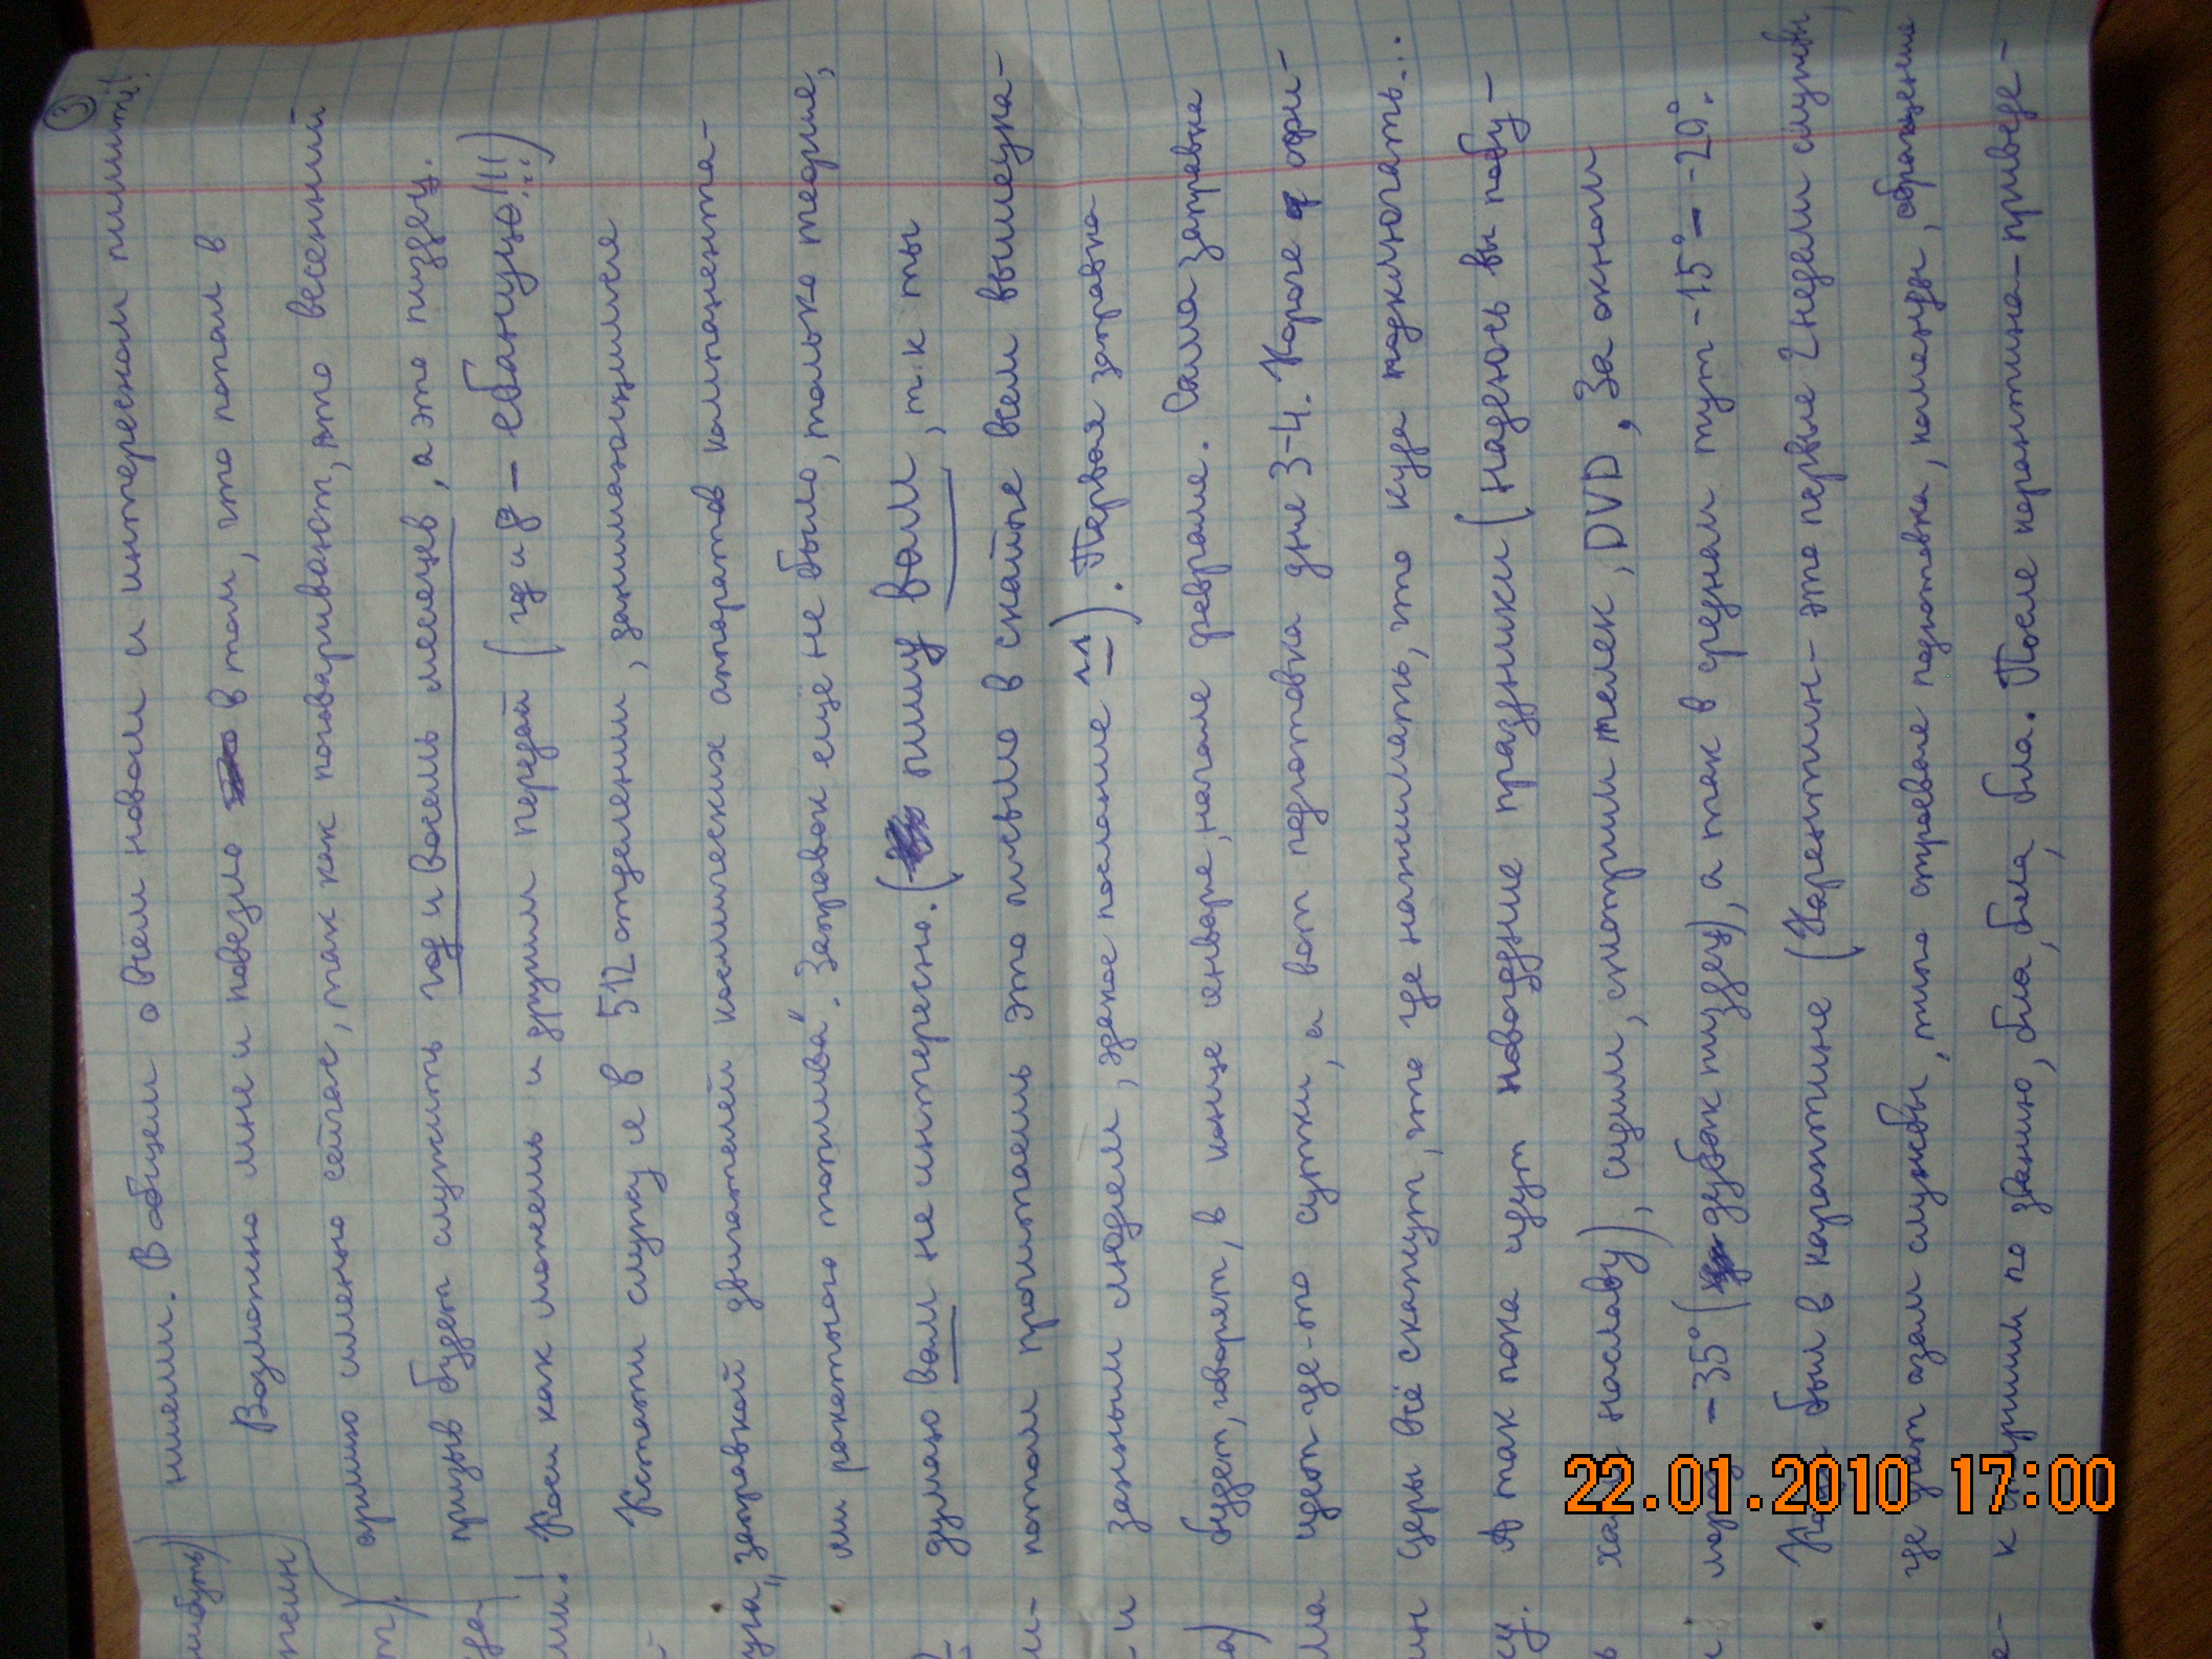 ③
нием. В общем о всём новом и интересном пишите!
Возможно мне и повезло в том, что попал в
армию именно сейчас, так как поговаривают, что весенний
призыв будет служить год и восемь месяцев, а это пиздец.
Коси как можешь и другим передай ( и - ебанцую!!!)
Кстати служу я в 512 отделении, занимающимся
„заправкой двигателей космических аппаратов компонента-
ми ракетного топлива". Заправок еще не было, только теория,
думаю вам не интересно. ( пишу вам, т.к ты
потом прочитаешь это письмо в скайпе всем вышеука-
занным людям, эдакое послание ^^). Первая заправка
будет, говорят, в конце января, начале февраля. Сама заправка
идет где-то сутки, а вот подготовка дня 3-4. Короче офи-
церы всё скажут, что где нажимать, что куда подключать...
А так пока идут новогодние праздники (надеюсь вы побу-
наславу), сидим, смотрим телек, DVD, За окном
-35° (дубак пиздец), а так в среднем тут -15° - -20°.
был в карантине (Карантин - это первые 2 недели службы,
где азам службы, типо строевая подготовка, команды, обращение
к по званию, бла, бла, бла. После карантина-приведе-
нибудь)
22.01.2010 17:00